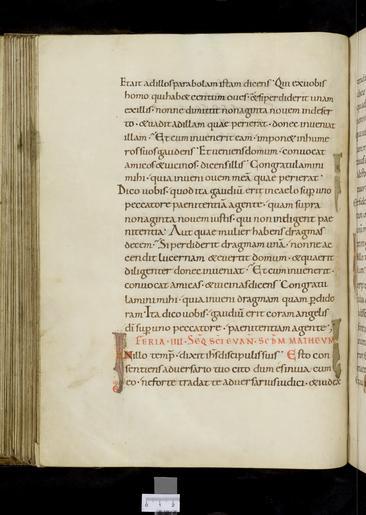 Et ait ad illos parabolam istam dicens· Qui ex uobis
homo qui habet centum oues· & si perdiderit unam
ex illis· nonne dimittit nonaginta nouem in deser
to· & uadit ad illam quae perierat· donec inueniat
illam· Et cum inuenerit eam· inponet in hume
ros suos gaudens· Et ueniens domum· conuocat
amicos & uicinos· dicens illis· Congratulamini
mihi· quia inueni ouem meā quae perierat·
Dico uobis· quod ita gaudiū erit in caelo sup uno
peccatore paenitentiā agente· quam supra
nonaginta nouem iustis· qui non indigent pae
nitentia· Aut quae mulier habens dragmas
decem· Si perdiderit dragmam unā· nonne ac
cendit lucernam & euertit domum· & quaerit
diligenter donec inueniat· Et cum inuenerit·
conuocat amicas & uicinas dicens· Congratu
lamini mihi· quia inueni dragmam quam pdido
ram· Ita dico uobis· gaudiū erit coram angelis
dī sup uno peccatore· paenitentiam agente;
FERIA· IIII· SEQ SCI EVAN· SCDM MATHEVM
IN illo temp̄· dixit ihs discipulis suis· Esto con
sentiens aduersario tuo cito dum es in uia cum
eo· ne forte tradat te aduersarius iudici· & iudex